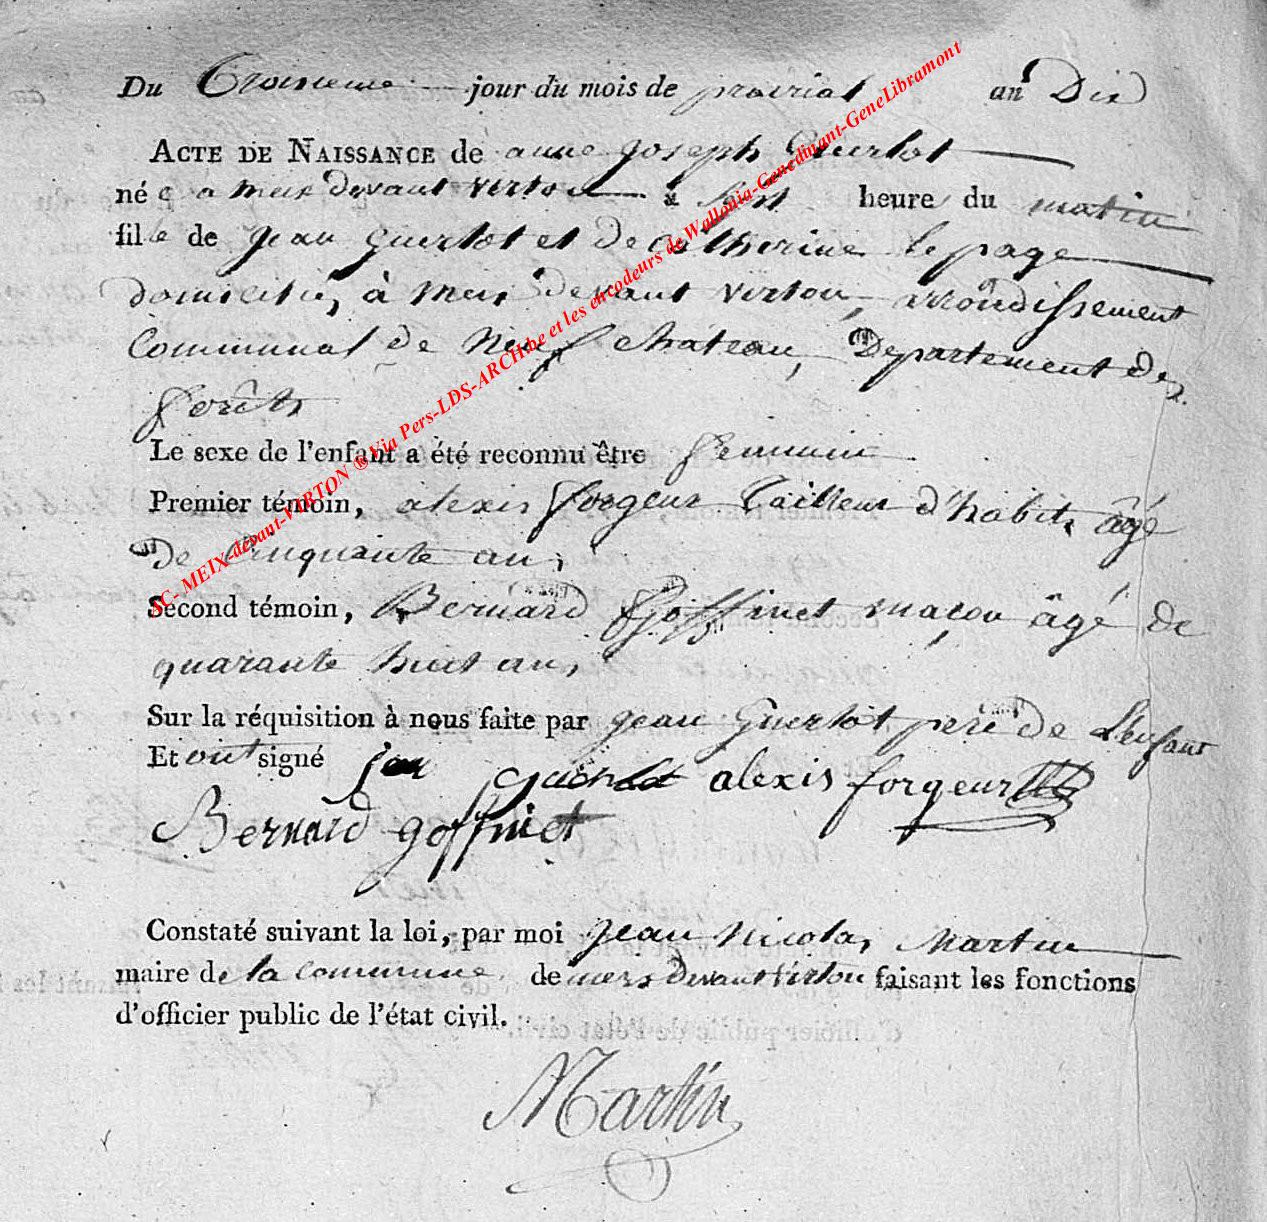 Du Troisieme jour du mois de prairial an Dix
ACTE DE NAISSANCE de anne joseph Guerlot
née a meix devant virton à sept heure du matin
fille de jean Guerlot et de catherine lepage
domiciliés à meix devant virton, arrondissement
Communal de Neufchateau, Département des
forêts
Le sexe de l'enfant a été reconnu être feminin
Premier témoin, alexis forgeur Tailleur d'habits âgé
De Cinquante ans
Second témoin, Bernard Goffinet maçon âgé de
quarante huit ans
Sur la réquisition à nous faite par jean Guerlot pere de L'enfant
Et ont signé jean Guerlot alexis forgeur
Bernard goffinet
Constaté suivant la loi, par moi jean Nicolas Martin
maire de la commune de meix Devant Virton faisant les fonctions
d'officier public de l'état civil.
Martin
SC- MEIX-devant-VIRTON ®Via Pers-LDS-ARCH.be et les encodeurs de Wallonia-Genedinant-GeneLibramont